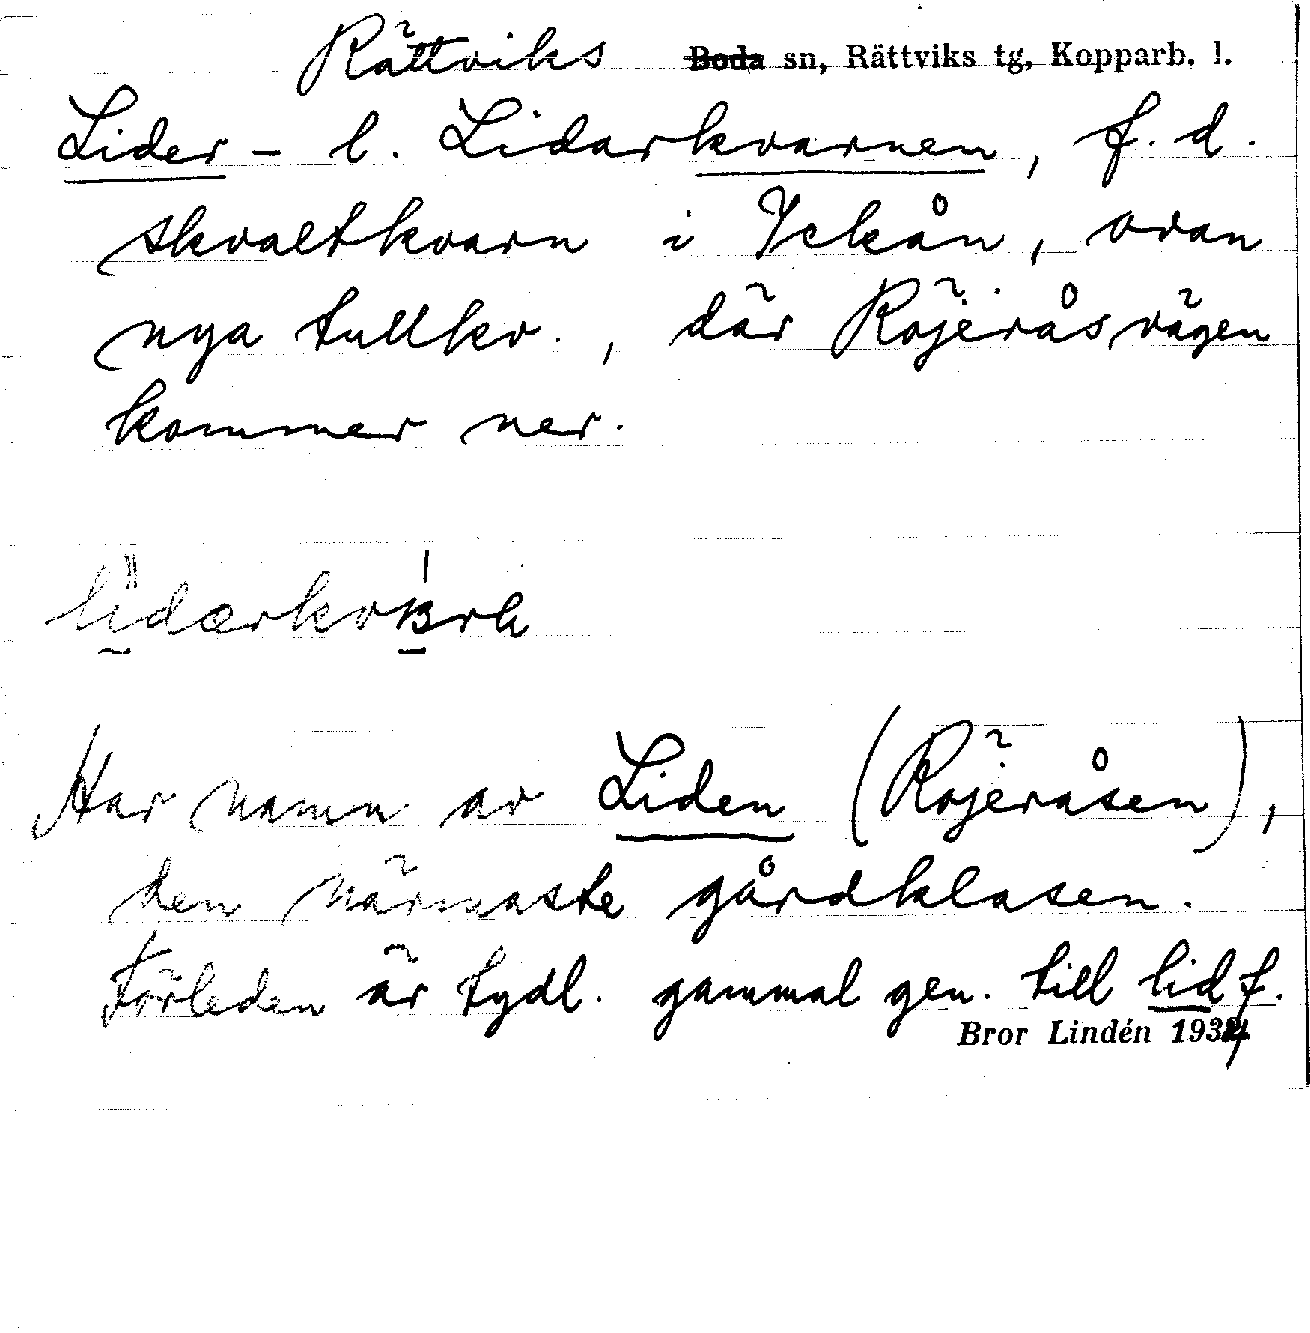 Rättviks Boda sn, Rättviks tg, Kopparb. l.
Lider- l. Lidarkvarnen, f. d.
skvaltkvarn i Ickån, ovan
nya tullkv., där Röjeråsvägen
kommer ner.
Har namn av Liden (Röjeråsen),
den närmaste gårdklasen.
Förleden är tydl. gammal gen. till lid f.
Bror Lindén 1934